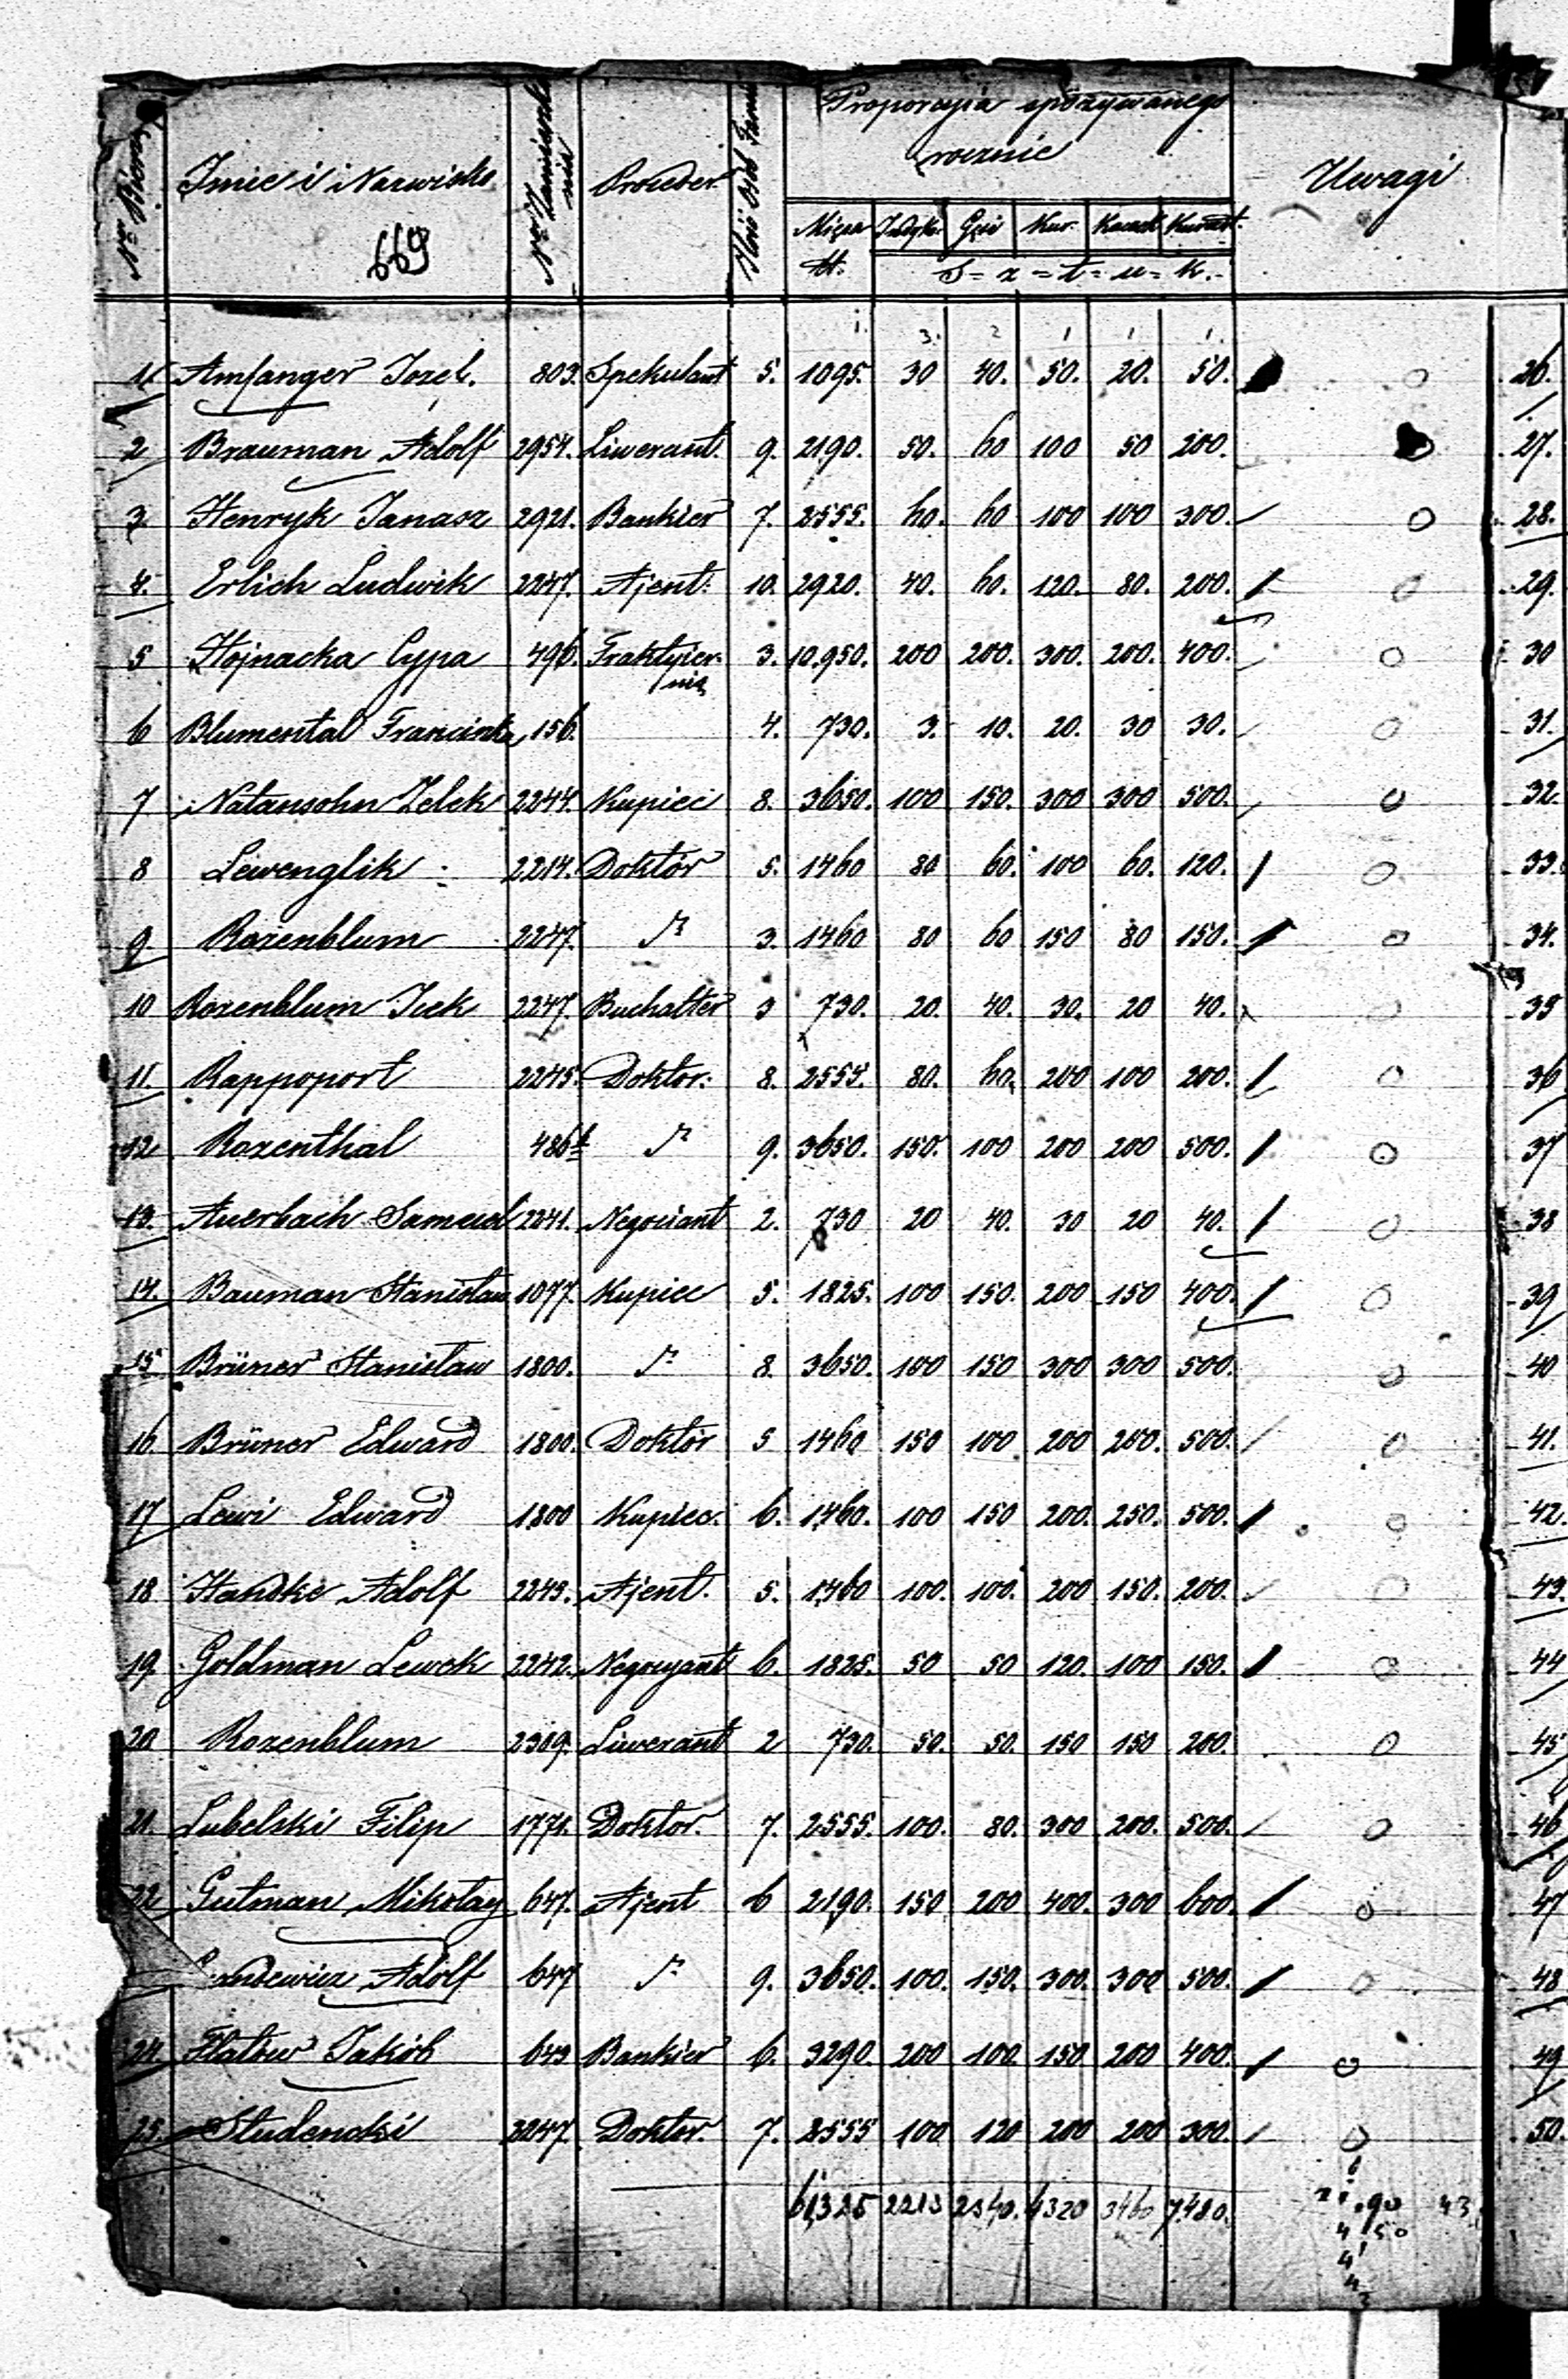 Proporcyia spożywanego
rocznie
Imie i Nazwisko
Proceder
Uwagi
669
Mięsa Indyk. Gęsi Kur. Kaczek Kurcząt.
S = z = t = u = k.
1. 3. 2 1 1 1.
1. Amfanger Jozef. 803. Spekulant 5. 1095. 30 40. 50. 20. 50. 26.
2 Brauman Adolf 2954. Liwerant. 9. 2190. 50. 60 100 50 200. 27.
3 Henryk Janasz 2921. Bankier 7. 2555. 60. 60 100 100 300. 28.
4. Erlich Ludwik 2247. Ajent. 10. 2920. 40. 60. 120. 80. 200. 29.
5 Hojnacka Cypa 496. Traktyier- 3. 10,950. 200 200. 300. 200. 400. 30
nia
6 Blumental Franciszka 156. 4. 730. 3. 10. 20. 30 30. 31.
7 Natansohn Zelek 2244. Kupiec 8. 3650. 100 150. 300 300 500. 32.
8 Lewenglik 2214. Doktór 5. 1460 80 60. 100 60. 120. 33.
9 Rozenblum 2247. 3. 1460 80 60 150 80 150. 34.
10 Rozenblum Icek 2247. Buchalter 3 730. 20. 40. 30. 20 40. 35
11. Rappoport 2245. Doktor. 8. 2555. 80. 60. 200 100 200. 36
12 Rozenthal 486 9. 3650. 150. 100 200 200 500. 37
13. Auerbach Samuel 2241. Negociant 2. 730 20 40. 30 20 40. 38
14. Bauman Stanisław 1077. Kupiec 5. 1825. 100 150. 200 150 400. 39
15 Brüner Stanisław 1800. 8. 3650. 100 150 300 300 500. 40
16 Brüner Edward 1800. Doktór 5 1460 150 100 200 200. 500. 41.
17 Lewi Edward 1800 Kupiec. 6. 1460. 100 150 200. 250. 500. 42.
18 Handke Adolf 2243. Ajent. 5. 1460 100. 100. 200 150. 200. 43.
19 Goldman Lewek 2242. Negocyant 6. 1825. 50 50 120. 100 150. 44
20 Rozenblum 2309. Liwerant 2 730. 50. 50. 150 150 200. 45
21. Lubelski Filip 1771. Doktor. 7. 2555. 100. 80. 300 200. 500. 46
22 Gutman Mikołay 647. Ajent 6 2190. 150 200 400. 300 600. 47
Adolf 647 9. 3650. 100. 150. 300. 300 500. 48
24. Flatow Jakób 643 Bankier 6. 3290. 200 100 150 200 400. 49
25. Studencki 2247. Doktor. 7. 2555 100 120 200 200 300. 50.
61,325 2213 2340. 4320 3460 7,480. 43